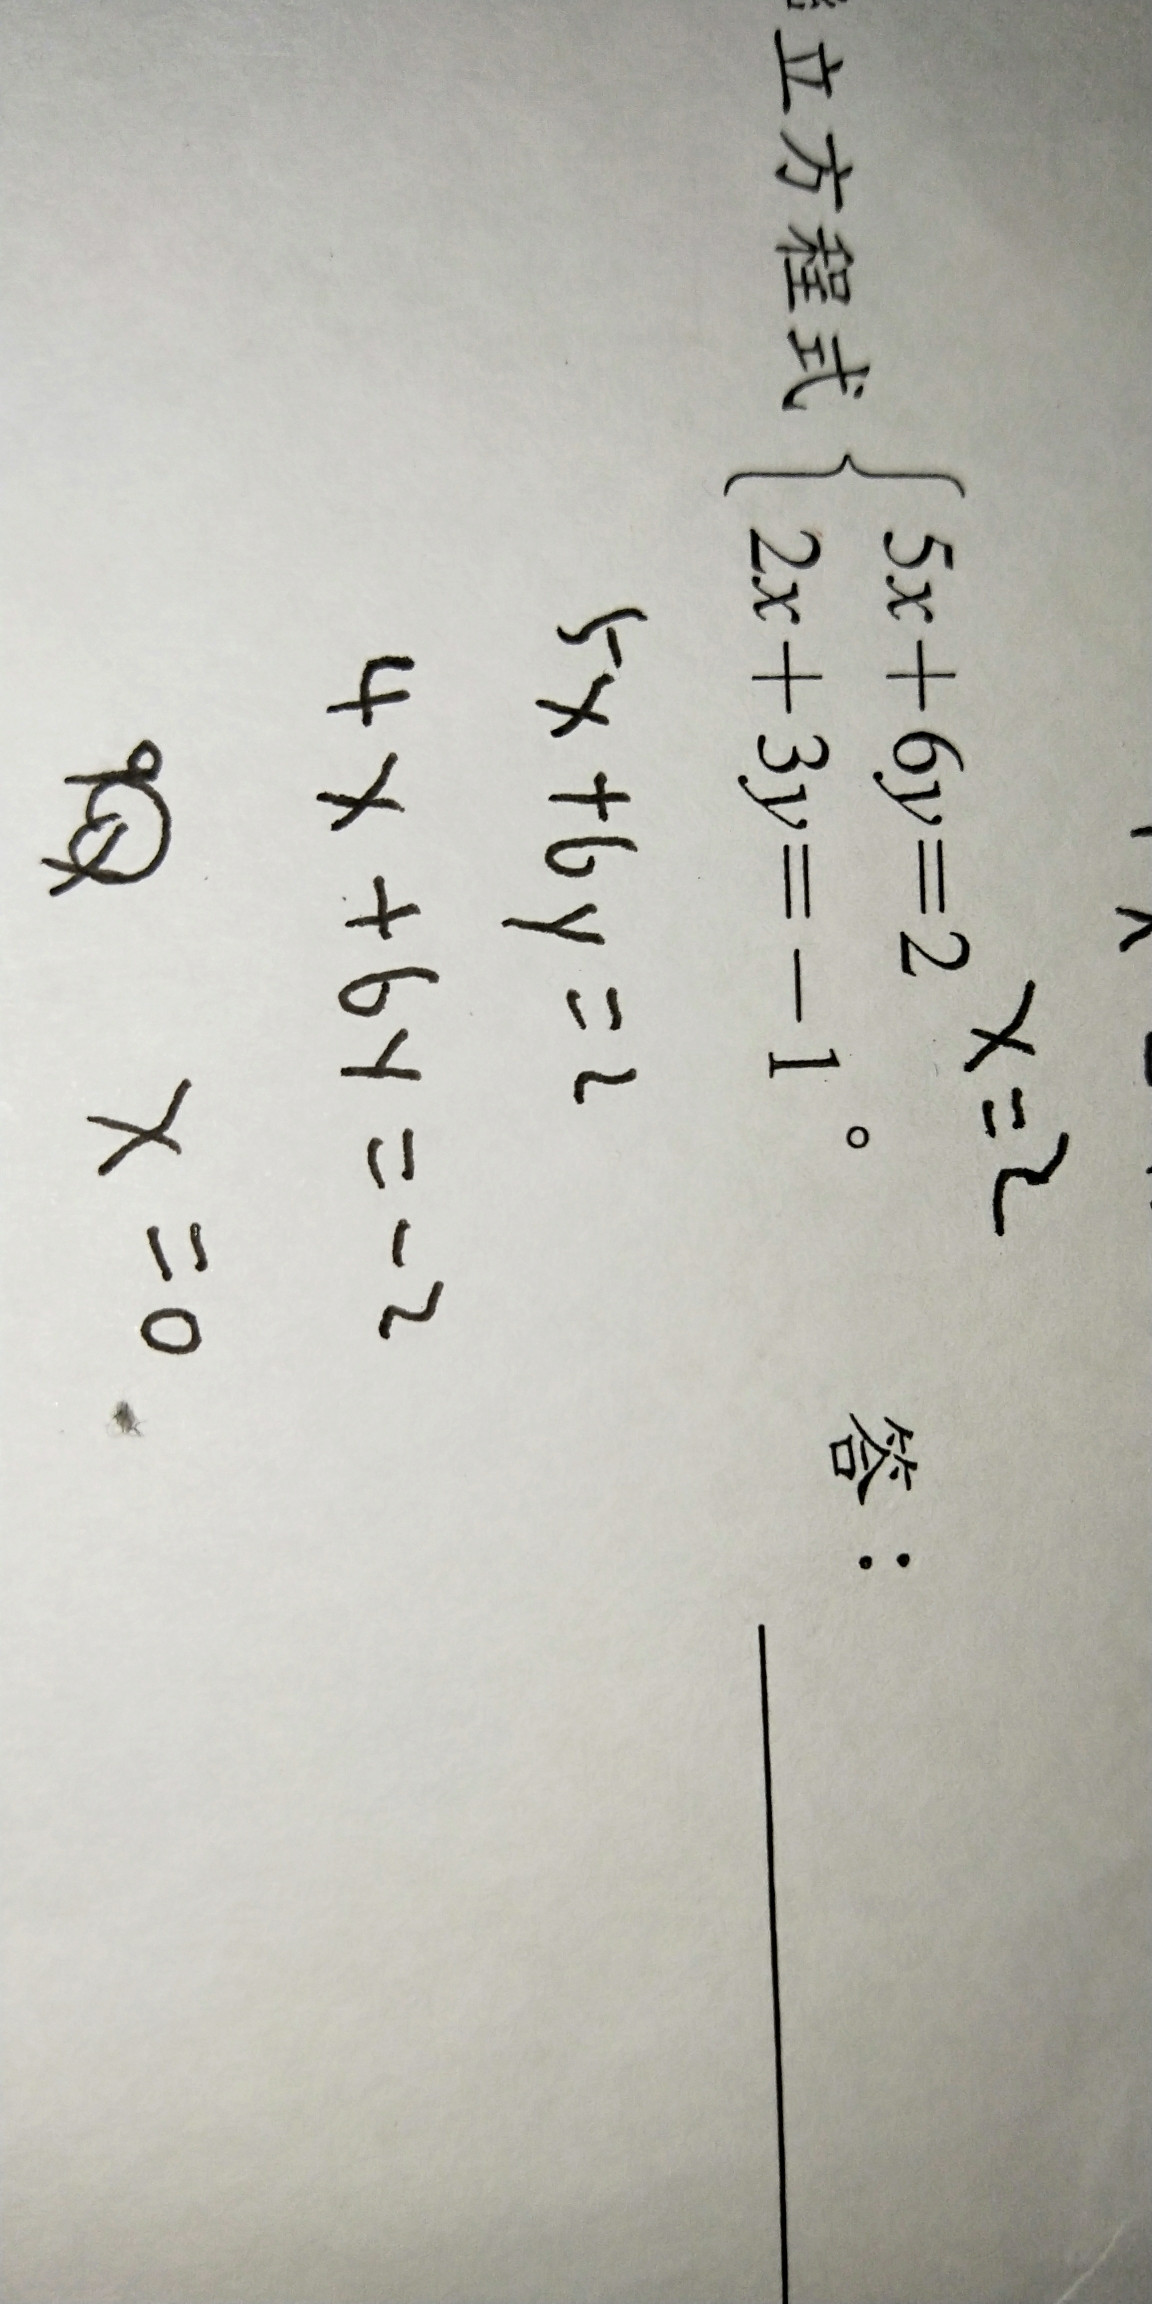 x=2
立方程式 { 5x+6y=2
2x+3y=-1 。 答：
5x+6y=2
4x+6y=-2
x=0